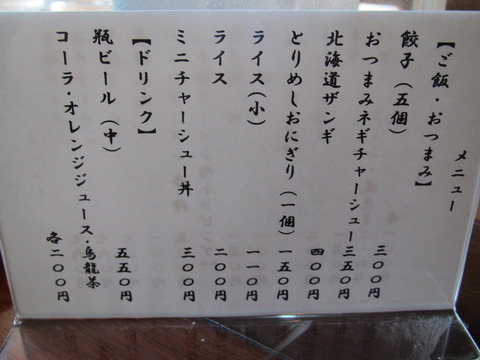 メニュー
【ご飯・おつまみ】
餃子（五個） 三〇〇円
おつまみネギチャーシュー 三五〇円
北海道ザンギ 四〇〇円
とりめしおにぎり（一個） 一五〇円
ライス（小） 一一〇円
ライス 二〇〇円
ミニチャーシュー丼 三〇〇円
【ドリンク】
瓶ビール（中） 五五〇円
コーラ・オレンジジュース・烏龍茶 各二〇〇円